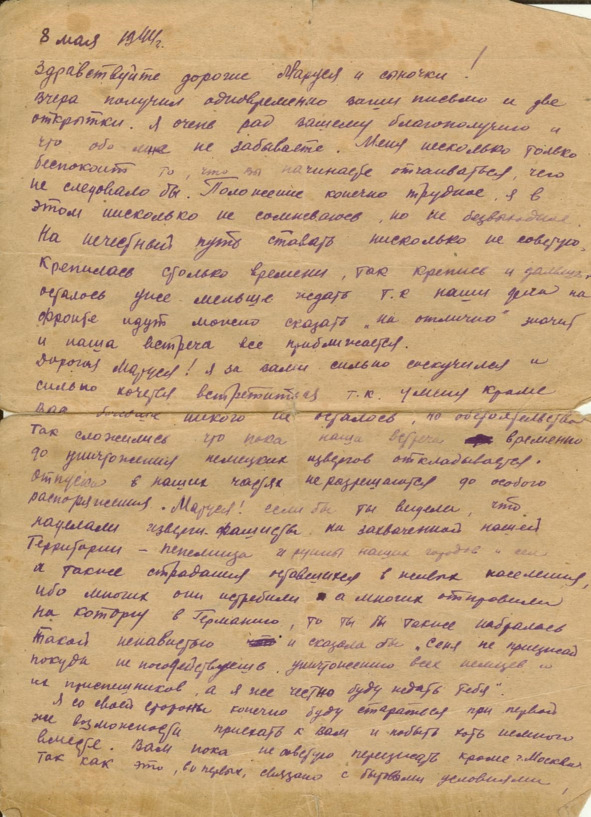 8 мая 1944г.
Здравствуйте дорогие Маруся и сыночки!
Вчера получил одновременно ваши письмо и две
открытки. Я очень рад вашему благополучию и
что обо мне не забываете. Меня несколько только
беспокоит то, что вы начинаете отчаиваться, чего
не следовало бы. Положение конечно трудное, я в
этом нисколько не сомневаюсь, но не безвыходное.
На нечестный путь ставать нисколько не советую,
Крепилась столько времени, так крепись и дальше,
осталось уже меньше ждать т.к наши дела на
фронте идут можно сказать „на отлично" значит
и наша встреча все приближается.
Дорогая Маруся! Я за вами сильно соскучился и
сильно хочется встретиться т.к. у меня кроме
вас никого не осталось, но обстоятельства
так сложились что пока наша встреча временно
до уничтожения немецких извергов откладывается.
Отпуска в наших частях не разрешаются до особого
распоряжения. Маруся! если бы ты видела, что
наделали изверги-фашисты на захваченной нашей
Территории – пепелища и руины наших городов и сел
а также страдания оставшихся в живых населения,
ибо многих они истребили а многих отправили
на каторгу в Германию, то ты бы также набралась
такой ненавистью и сказала бы „Сеня не приезжай
покуда не посодействуешь уничтожению всех немцев и
их приспешников, а я же честно буду ждать тебя".
Я со своей стороны конечно буду стараться при первой
же возможности приехать к вам и побыть хоть немного
вместе. Вам пока не советую переезжать кроме г. Москвы
так как это, во первых, связано с бытовыми условиями,